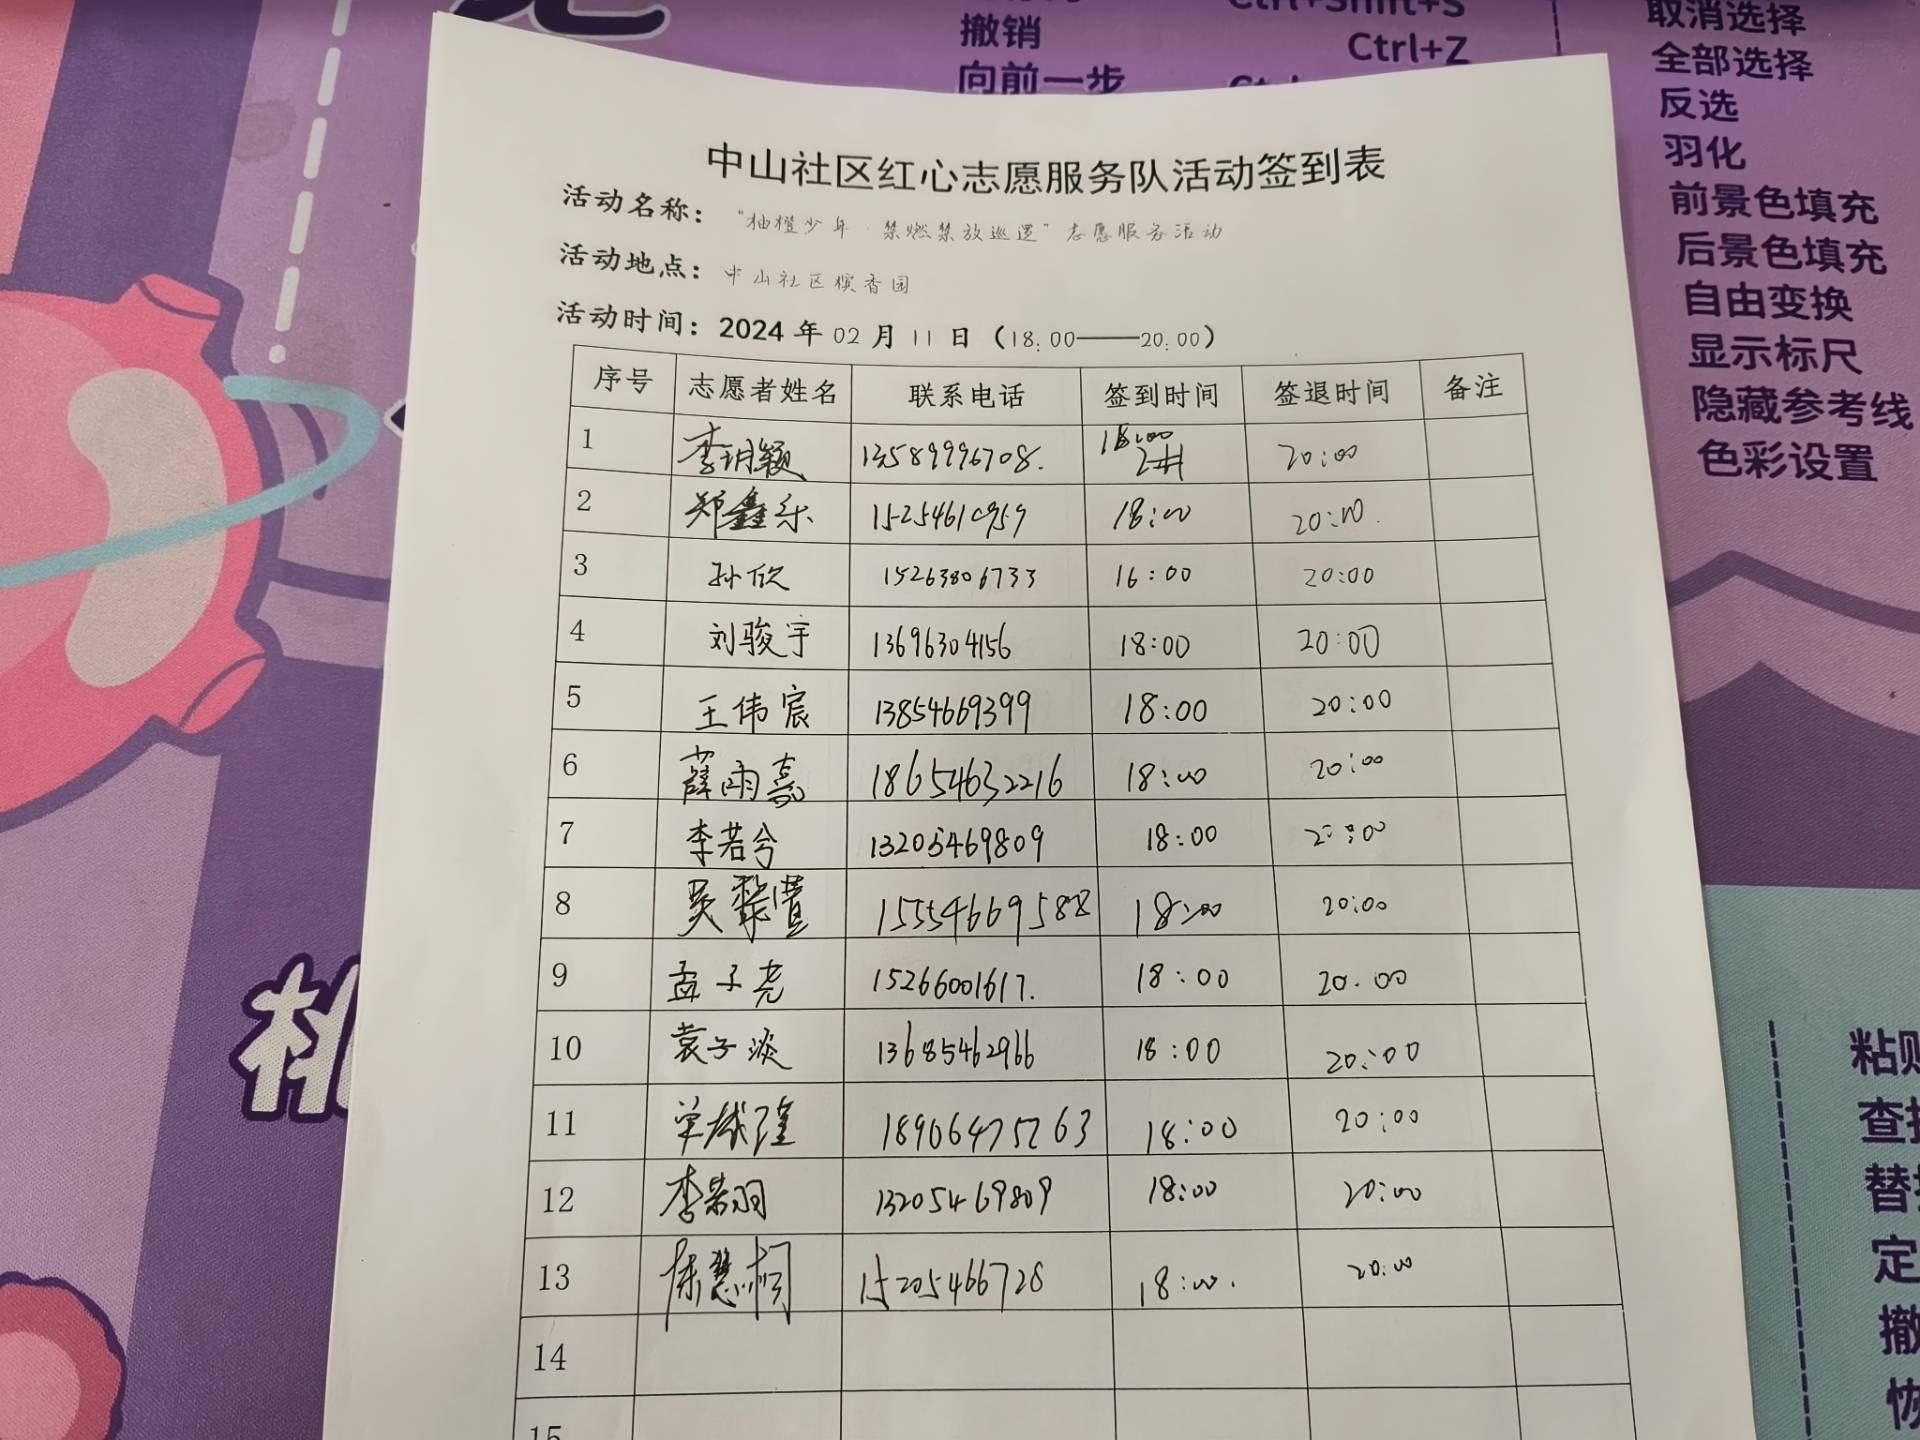 撤销 Ctrl+Shift+S
Ctrl+Z
向前一步
取消选择
全部选择
反选
羽化
前景色填充
后景色填充
自由变换
显示标尺
隐藏参考线
色彩设置
中山社区红心志愿服务队活动签到表
活动名称："柚橙少年·禁燃禁放巡逻"志愿服务活动
活动地点：中山社区槟香园
活动时间：2024年02月11日（18:00——20:00）
序号 志愿者姓名 联系电话 签到时间 签退时间 备注
1 李玥颖 13589996708. 18:00 20:00
2 郑鑫乐 15254610959 18:00 20:00.
3 孙欣 15263806733 16:00 20:00
4 刘骏宇 13696304156 18:00 20:00
5 王伟宸 13854669399 18:00 20:00
6 薛雨嘉 18654632216 18:00 20:00
7 李若兮 13205469809 18:00 20:00
8 吴黎萱 15554669588 18:00 20:00
9 孟子尧 15266001617. 18:00 20.00
10 袁子淡 13685462966 18:00 20:00
11 18906475263 18:00 20:00
12 李若羽 13205469809 18:00 20:00
13 陈慧桐 15205466728 18:00. 20:00
14
15
粘贴
查找
替
定
撤
恢